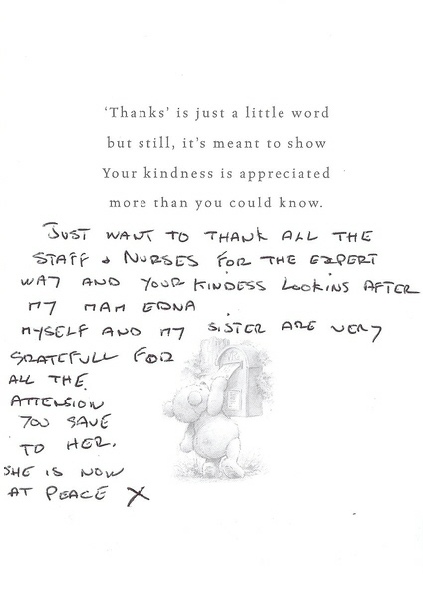 ‘Thanks’ is just a little word
but still, it’s meant to show
Your kindness is appreciated
more than you could know.
JUST WANT TO THANK ALL THE
STAFF & NURSES FOR THE EXPERT
WAY AND YOUR KINDESS LOOKING AFTER
MY MAM EDNA.
MYSELF AND MY SISTER ARE VERY
GRATEFULL FOR
ALL THE
ATTENSION
YOU GAVE
TO HER.
SHE IS NOW
AT PEACE X